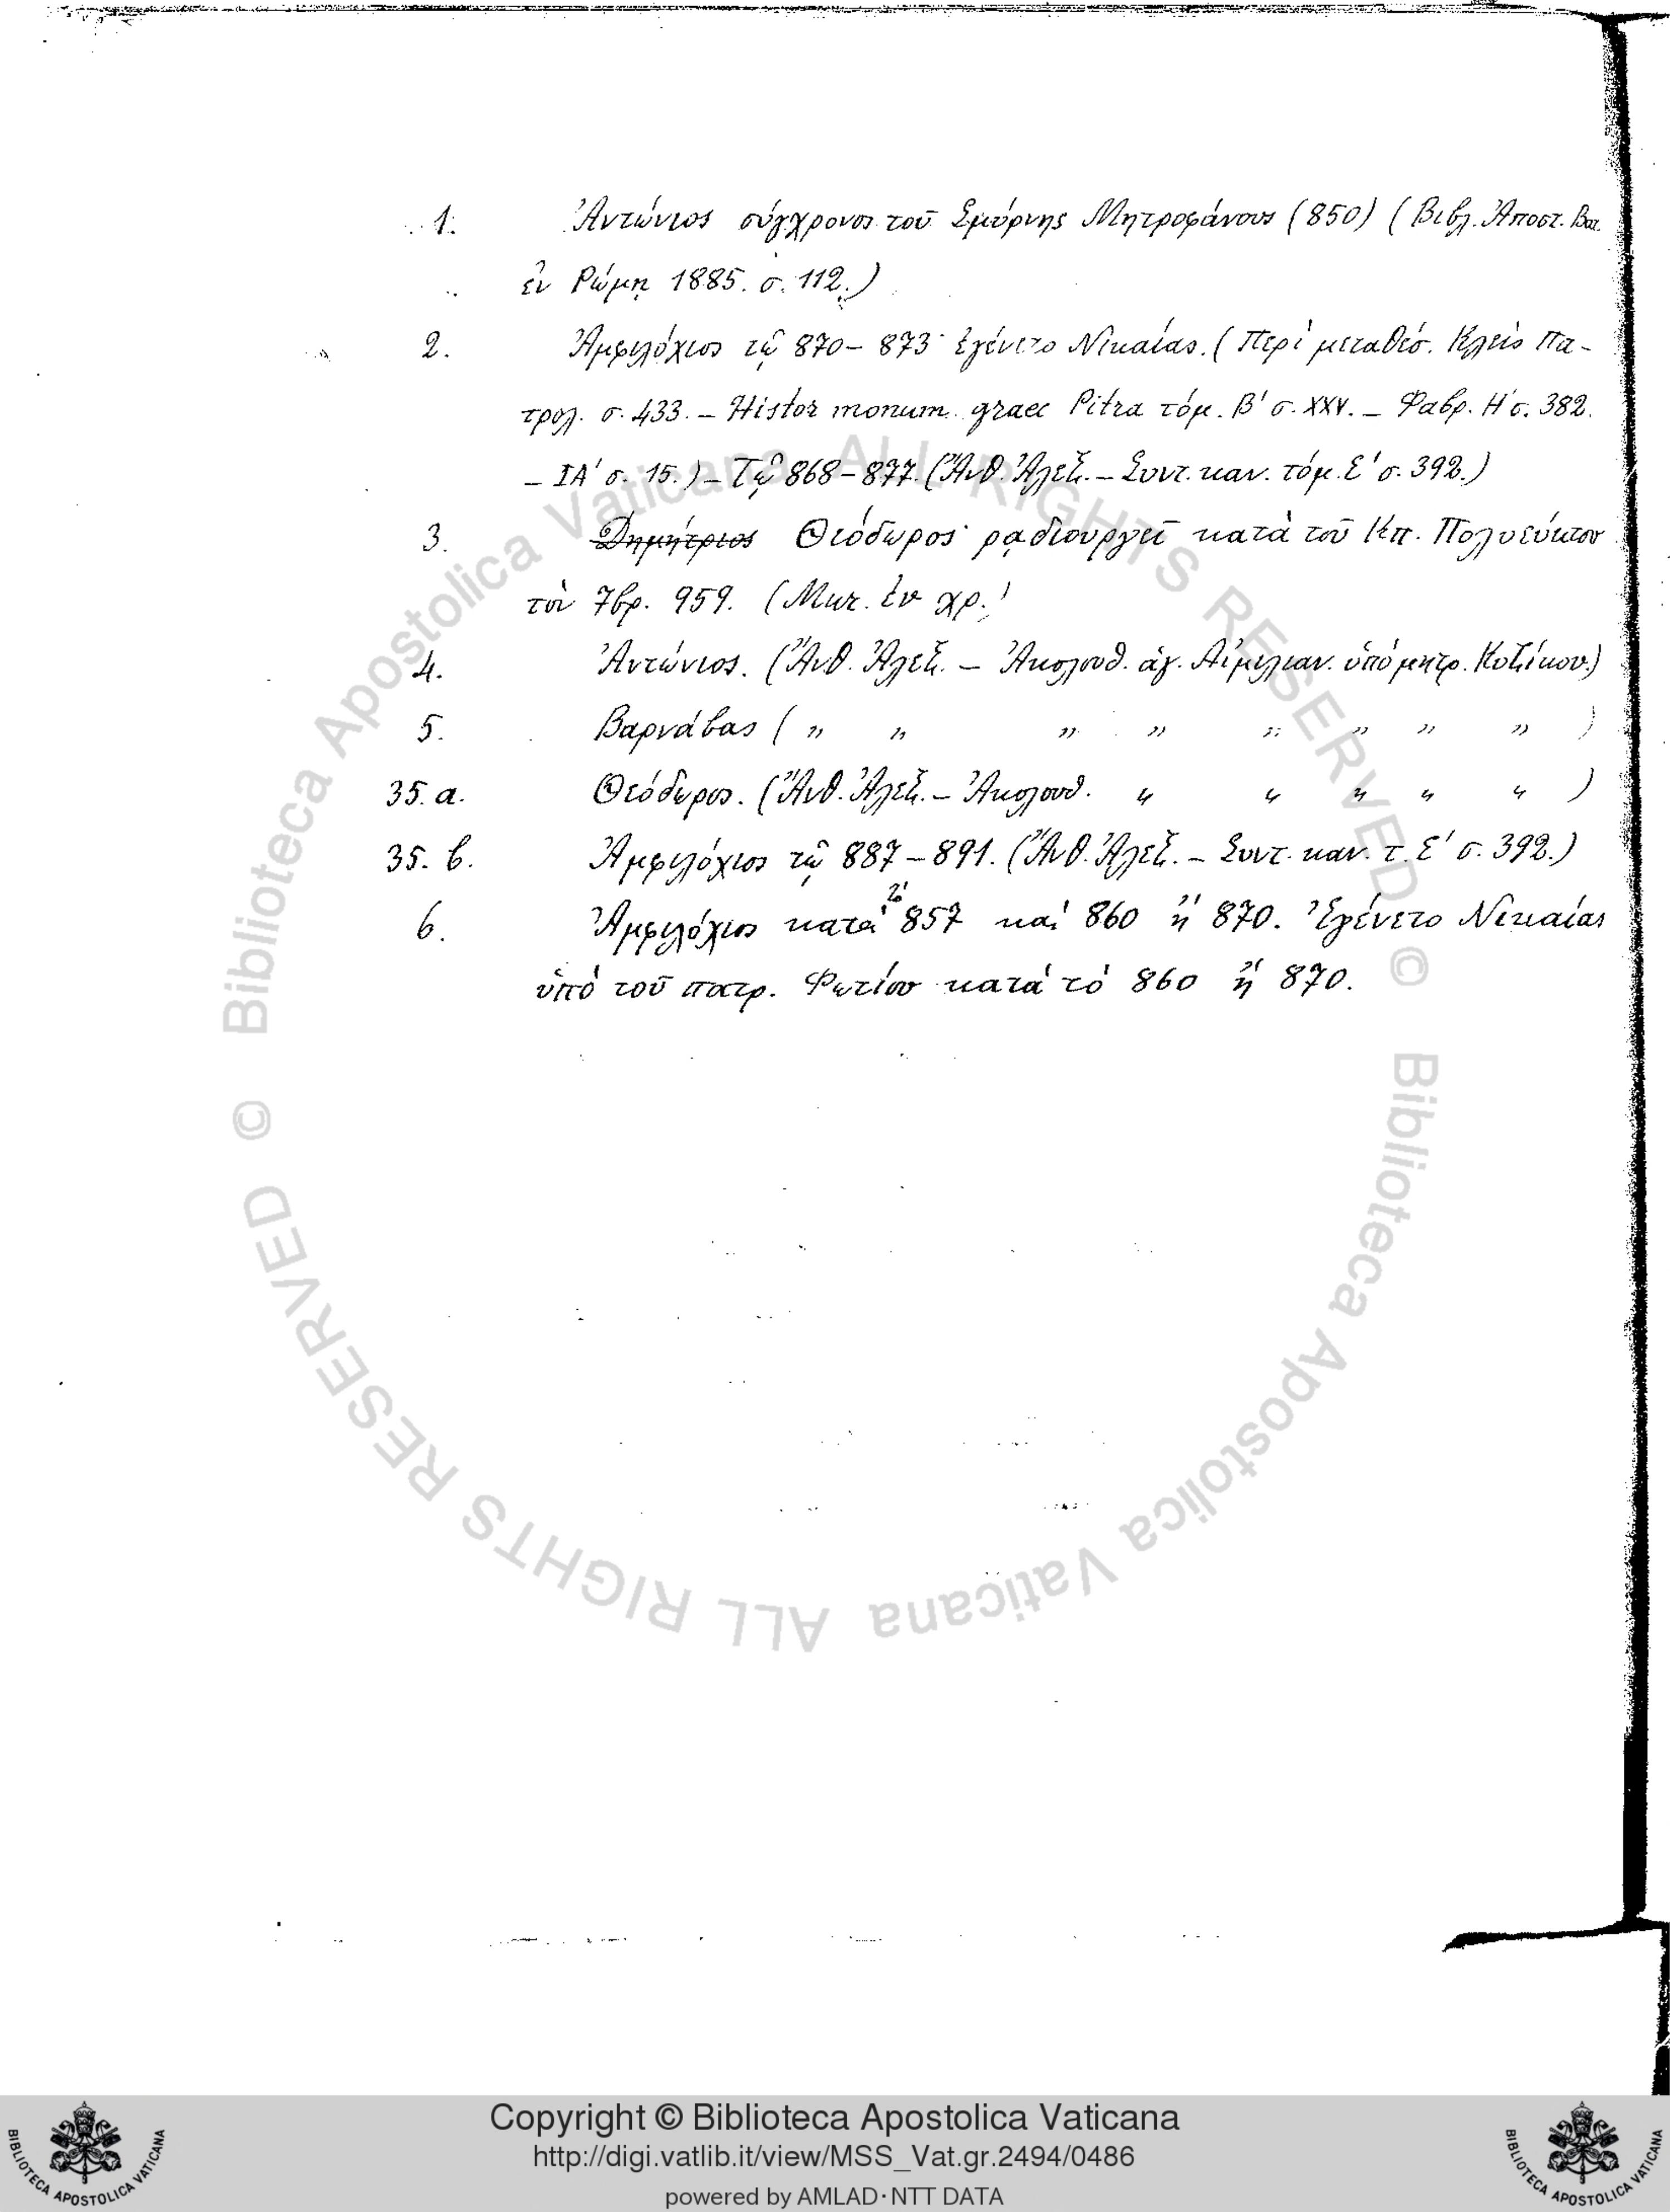 1. Ἀντώνιος σύγχρονος τοῦ Σμύρνης Μητροφάνους (850) (Βιβλ. Ἀποστ. Βατ.
ἐν Ρώμῃ 1885. σ. 112.)
2. Ἀμφιλόχιος τῷ 870 – 873 ἐγένετο Νικαίας. (Περὶ μεταθέσ. Κλεὶς Πα-
τρολ. σ. 433. – Histor monum. graec Pitra τόμ. Β' σ. XXV. – Φαβρ. Η' σ. 382.
– ΙΑ' σ. 15.) – Τῷ 868 – 877. (Ἄνθ. Ἀλεξ. – Συντ. καν. τόμ. Ε' σ. 392.)
3. Δημήτριος Θεόδωρος ῥᾳδιουργεῖ κατὰ τοῦ Κπ. Πολυεύκτου
τὸν 7βρ. 959. (Μικ. ἐν χρ.)
4. Ἀντώνιος. (Ἄνθ. Ἀλεξ. – Ἀκολουθ. ἁγ. Αἰμιλιαν. ὑπὸ μητρ. Κυζίκου.)
5. Βαρνάβας ( „ „ „ „ „ „ „ „ )
35. a. Θεόδωρος. (Ἄνθ. Ἀλεξ. – Ἀκολουθ. „ „ „ „ „ )
35. b. Ἀμφιλόχιος τῷ 887 – 891. (Ἄνθ. Ἀλεξ. – Συντ. καν. τ. Ε' σ. 392.)
6. Ἀμφιλόχιος κατὰ τὸ 857 καὶ 860 ἢ 870. Ἐγένετο Νικαίας
ὑπὸ τοῦ πατρ. Φωτίου κατὰ τὸ 860 ἢ 870.
© Biblioteca Apostolica Vaticana ALL RIGHTS RESERVED
© Biblioteca Apostolica Vaticana ALL RIGHTS RESERVED
BIBLIOTECA APOSTOLICA VATICANA
Copyright © Biblioteca Apostolica Vaticana
http://digi.vatlib.it/view/MSS_Vat.gr.2494/0486
powered by AMLAD·NTT DATA
BIBLIOTECA APOSTOLICA VATICANA